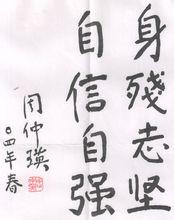 身残志坚
自信自强
周仲瑛
〇四年春